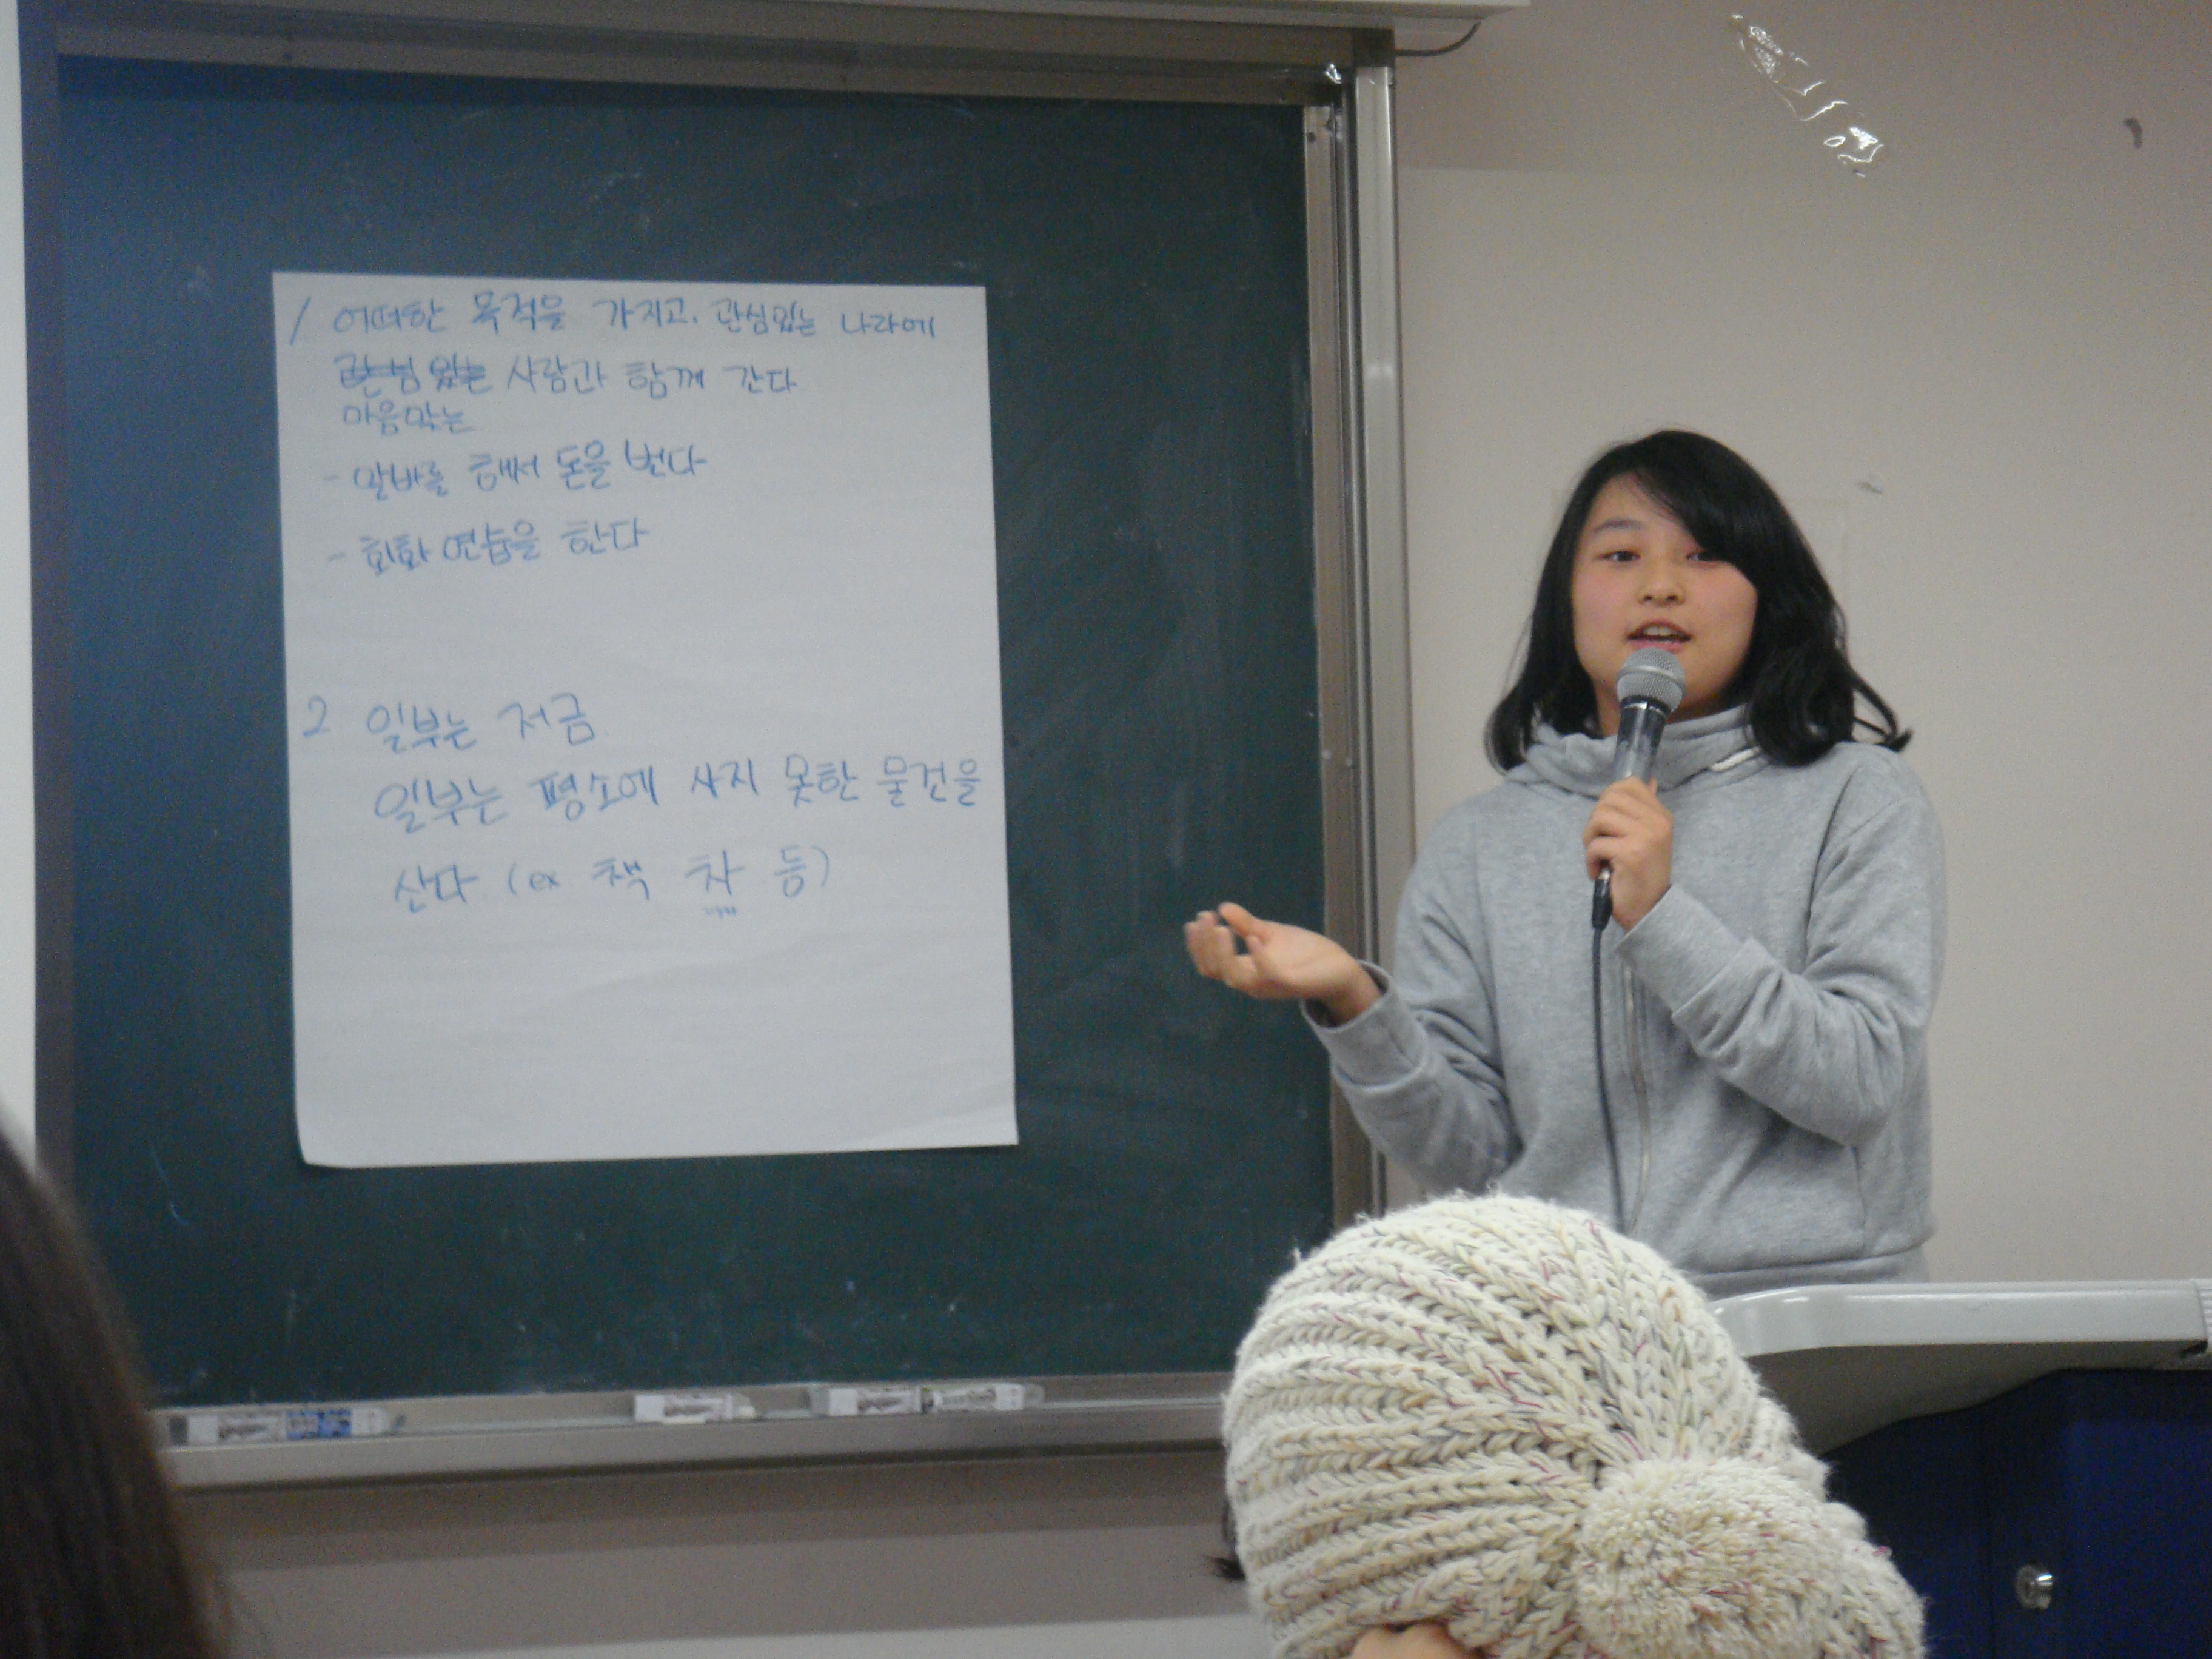 1 어떠한 목적을 가지고, 관심있는 나라에
관심 있는 사람과 함께 간다
마음맞는
- 알바를 해서 돈을 번다
- 회화 연습을 한다
2 일부는 저금
일부는 평소에 사지 못한 물건을
산다 (ex 책 차 등)